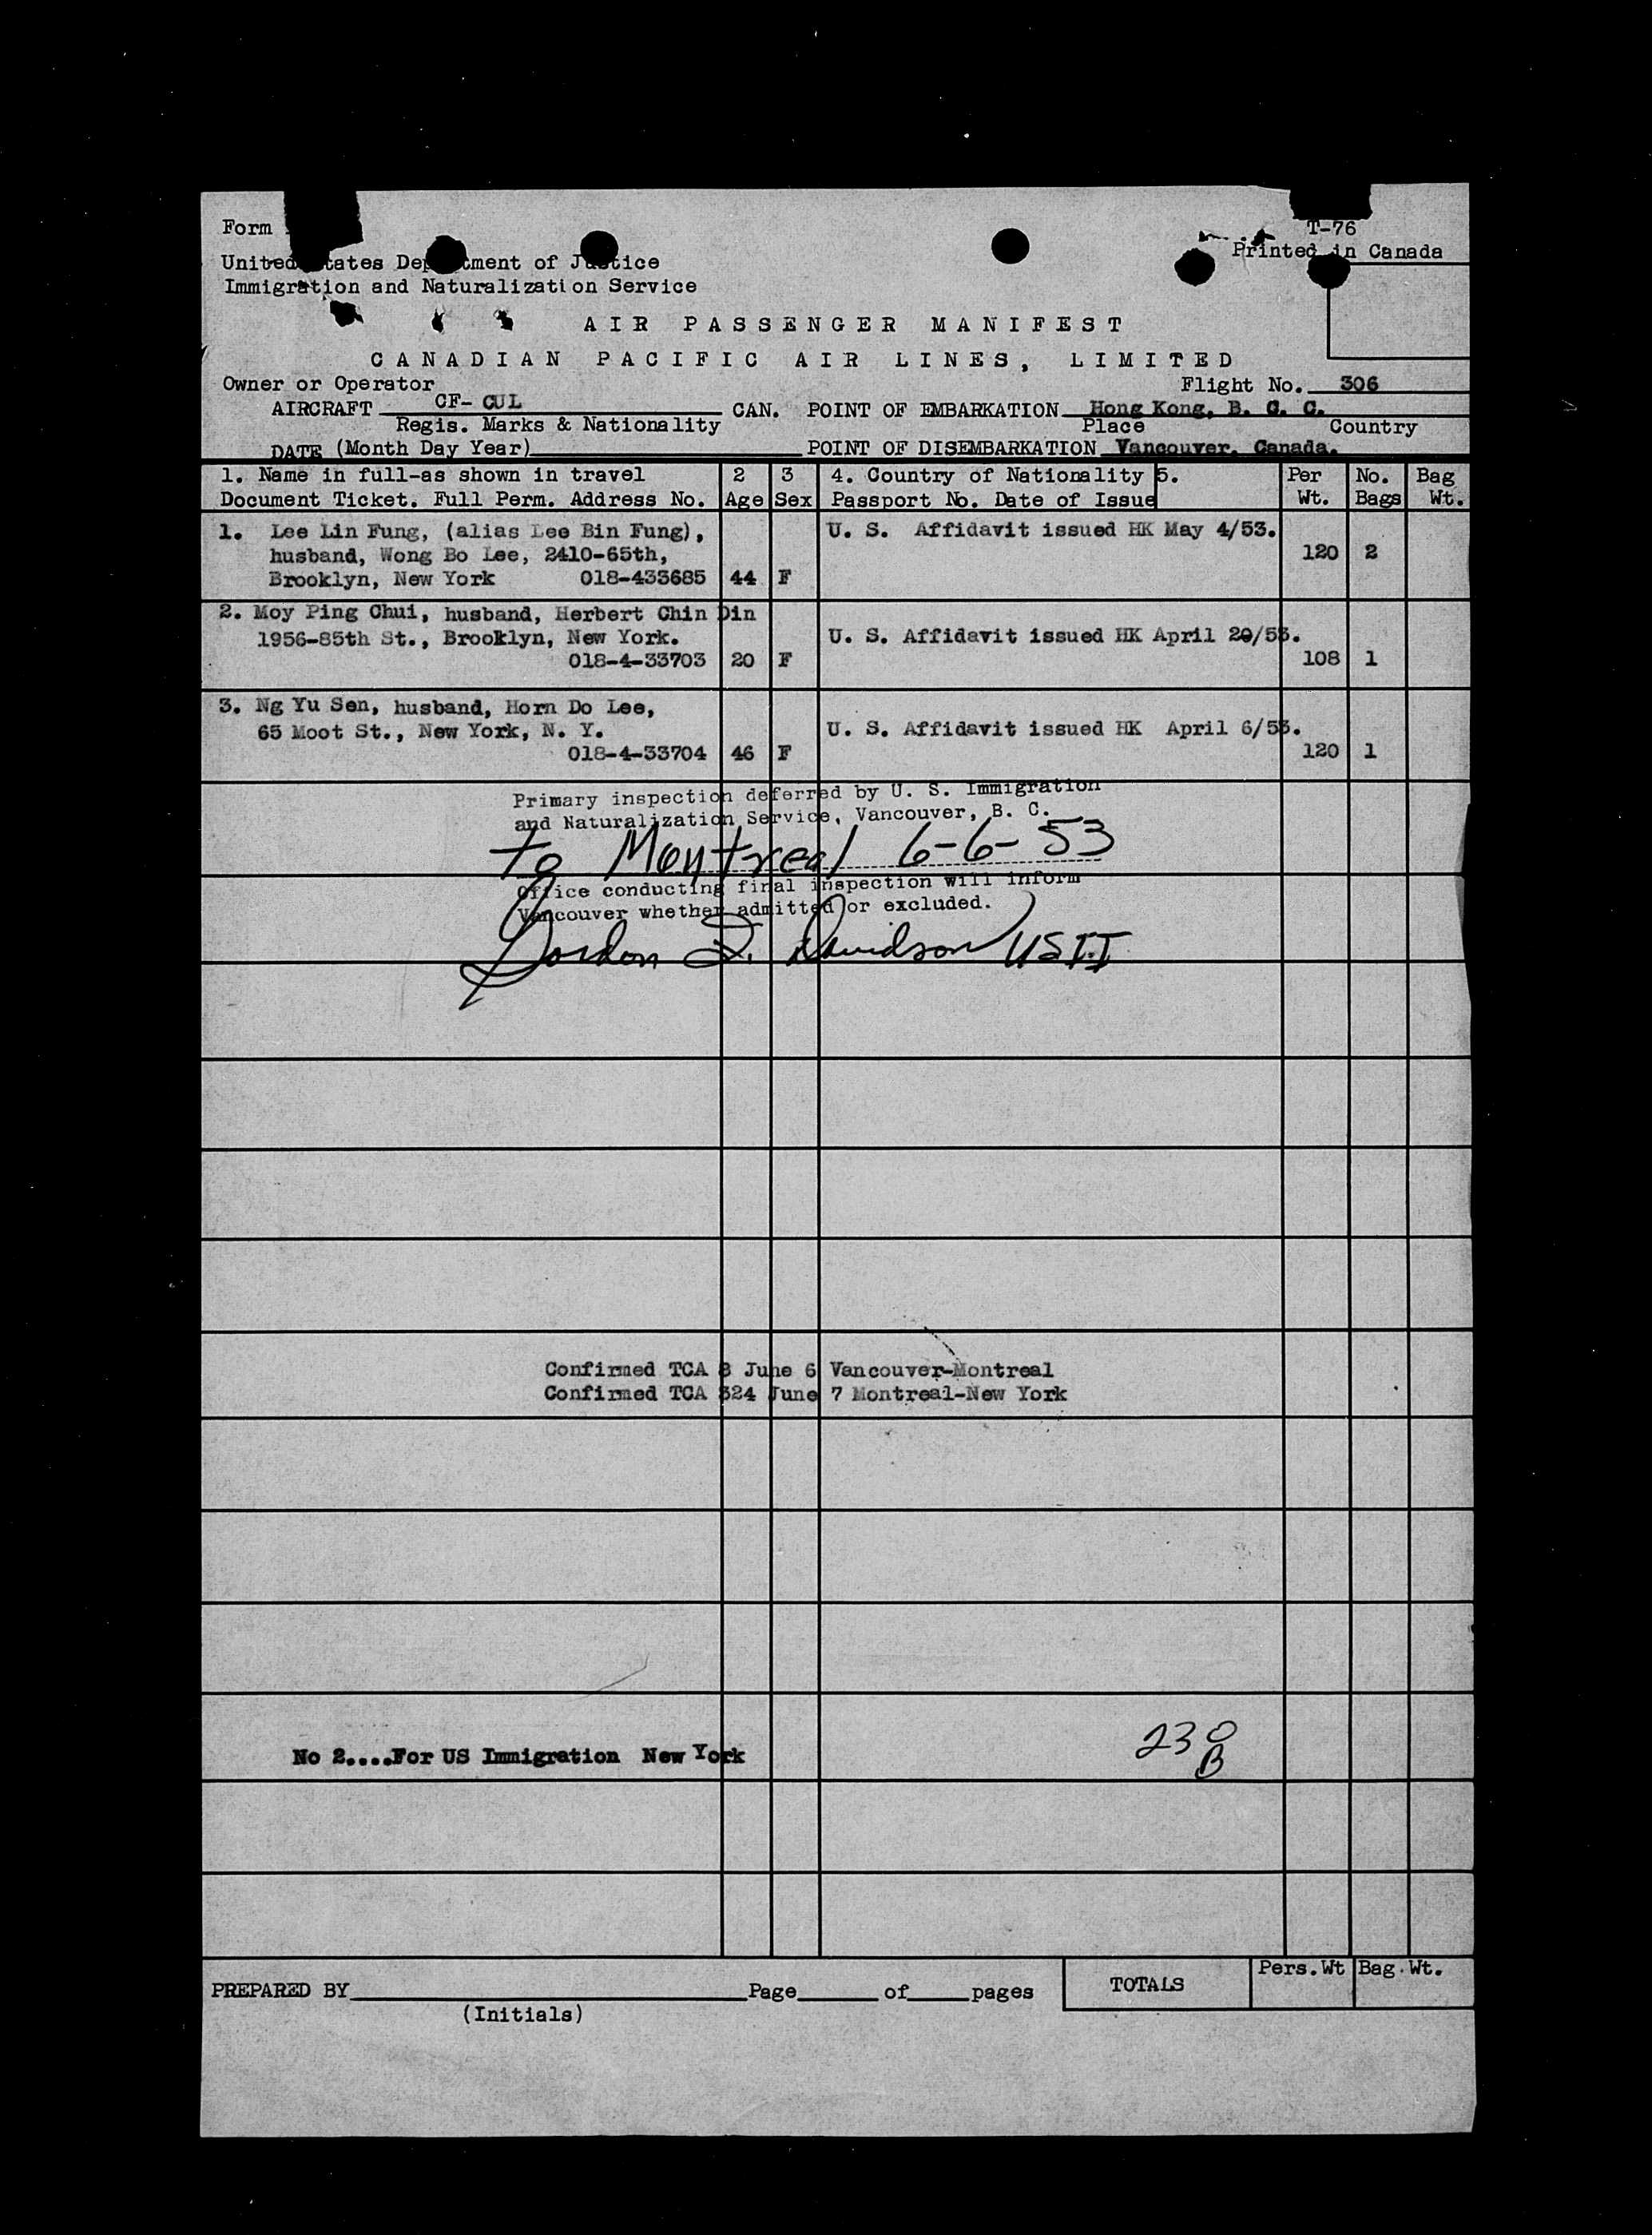 Form T-76
United States Department of Justice Printed in Canada
Immigration and Naturalization Service
AIR PASSENGER MANIFEST
CANADIAN PACIFIC AIR LINES, LIMITED
Owner or Operator Flight No. 306
AIRCRAFT CF- CUL CAN. POINT OF EMBARKATION Hong Kong, B. C. C.
Regis. Marks & Nationality Place Country
DATE (Month Day Year) POINT OF DISEMBARKATION Vancouver, Canada.
1. Name in full-as shown in travel 2 3 4. Country of Nationality 5. Per No. Bag
Document Ticket. Full Perm. Address No. Age Sex Passport No. Date of Issue Wt. Bags Wt.
1. Lee Lin Fung, (alias Lee Bin Fung), U. S. Affidavit issued HK May 4/53.
husband, Wong Bo Lee, 2410-65th, 120 2
Brooklyn, New York 018-433685 44 F
2. Moy Ping Chui, husband, Herbert Chin Din
1956-85th St., Brooklyn, New York. U. S. Affidavit issued HK April 20/53.
018-4-33703 20 F 108 1
3. Ng Yu Sen, husband, Horn Do Lee,
65 Moot St., New York, N. Y. U. S. Affidavit issued HK April 6/53.
018-4-33704 46 F 120 1
Primary inspection deferred by U. S. Immigration
and Naturalization Service, Vancouver, B. C.
to Montreal 6-6-53
Office conducting final inspection will inform
Vancouver whether admitted or excluded.
Gordon D. Davidson USII
Confirmed TCA 8 June 6 Vancouver-Montreal
Confirmed TCA 324 June 7 Montreal-New York
238
No 2....For US Immigration New York B
Pers.Wt Bag.Wt.
PREPARED BY Page of pages TOTALS
(Initials)